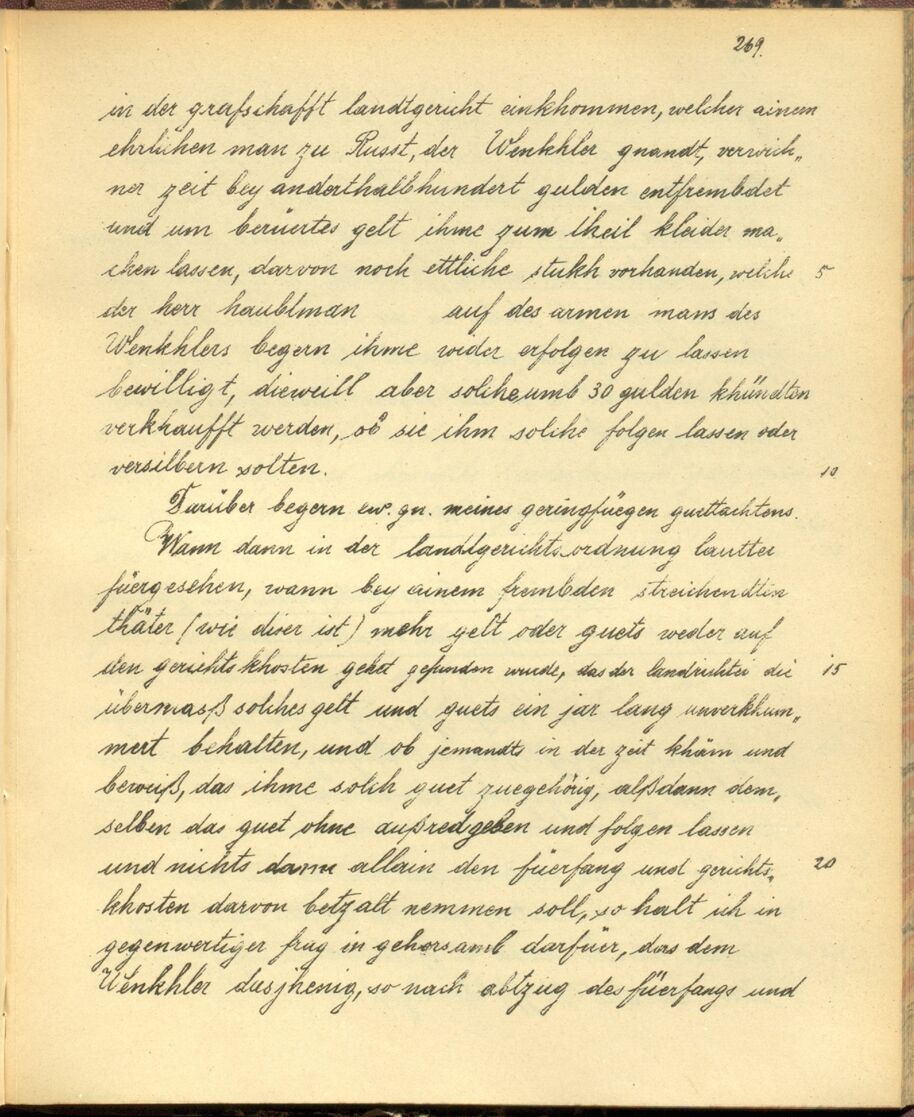 269.
in der grafschafft landtgericht einkhommen, welcher ainem
ehrlichen man zu Russt, der Wenkhler gnandt, verwich„
ner zeit bey anderthalbhundert gulden entfrembdet
und um berüertes gelt ihme zum theil kleider ma„
chen lassen, darvon noch ettliche stukh vorhanden, welche 5
der herr haubtman auf des armen mans des
Wenkhlers begern ihme wider erfolgen zu lassen
bewilligt, dieweill aber solche umb 30 gulden khündten
verkhaufft werden, ob sie ihm solche folgen lassen oder
versilbern solten. 10
Darüber begern ew. gn. meines geringfüegen guettachtens.
Wann dann in der landtgerichtsordnung lautter
füergesehen, wann bey ainem frembden streichendten
thäter (wie diser ist) mehr gelt oder guets weder auf
den gerichtskhosten gehet gefunden wurde, das der landrichter die 15
übermasß solches gelt und guets ein jar lang unverkhum„
mert behalten, und ob jemandts in der zeit khäm und
beweiß, das ihme solch guet zuegehörig, alßdann dem„
selben das guet ohne außred geben und folgen lassen
und nichts dann allain den füerfang und gerichts„ 20
khosten darvon betzalt nemmen soll, so halt ich in
gegenwertiger frag in gehorsamb darfüer, das dem
Wenkhler dasjhenig, so nach abtzug des füerfangs und